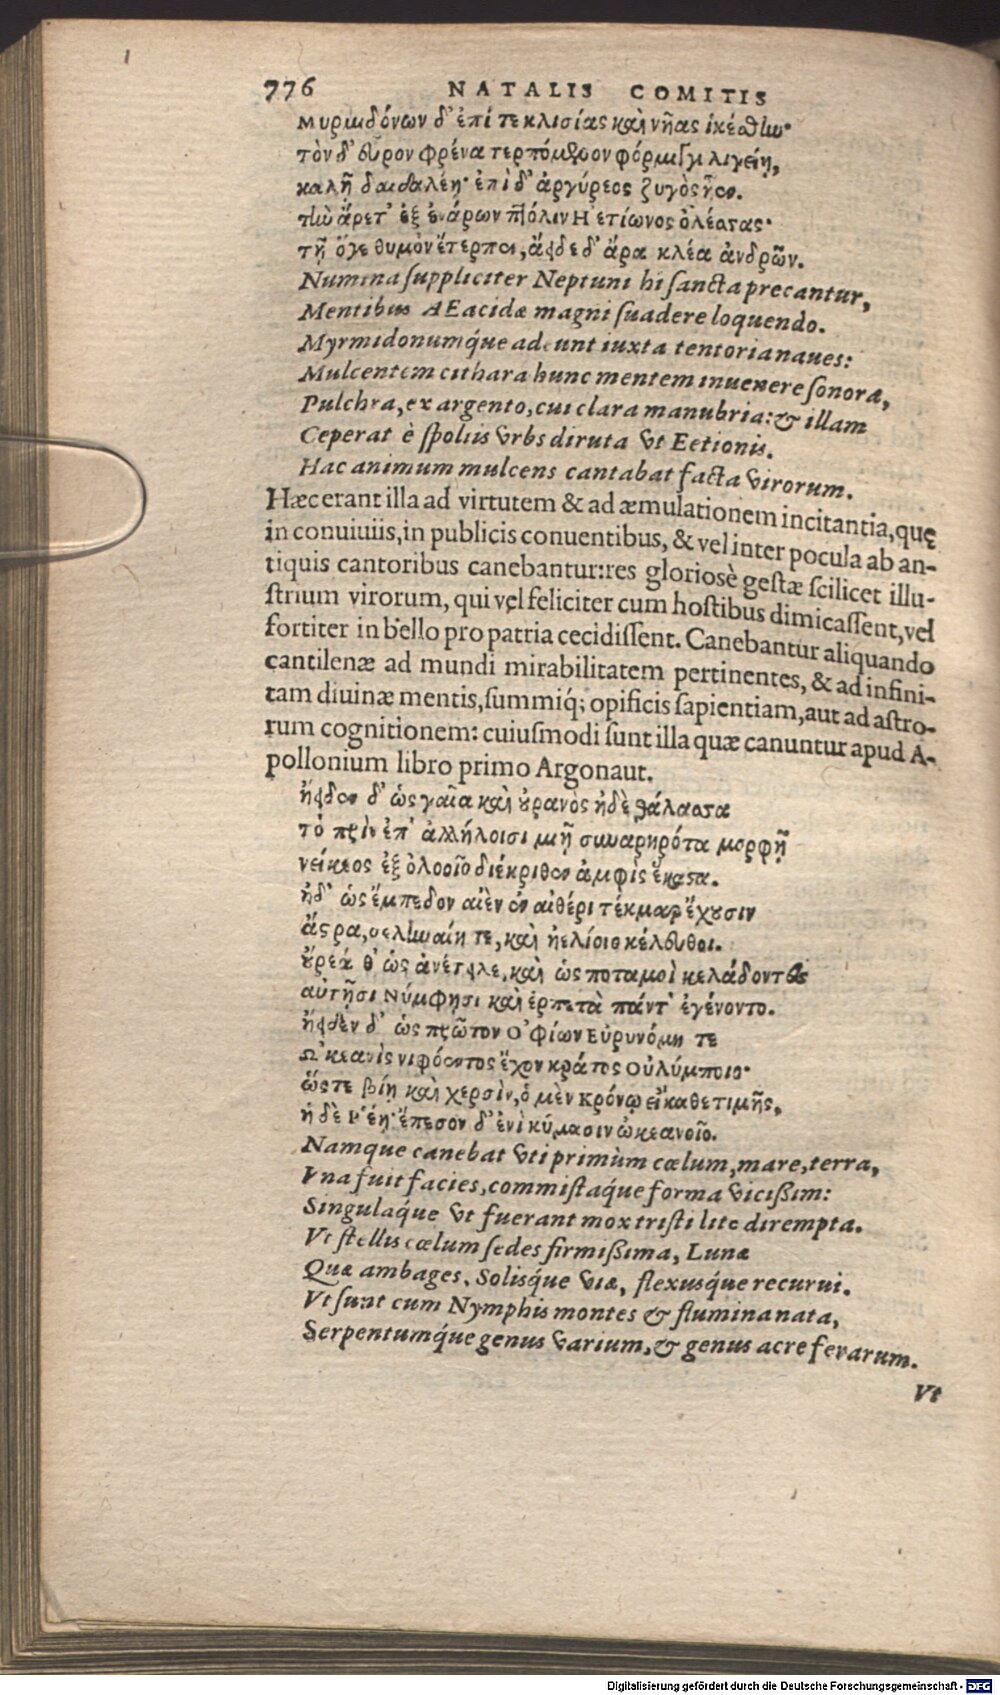 776 NATALIS COMITIS
Μυρμιδόνων δ' ἐπί τε κλισίας καὶ νῆας ἱκέσθην·
τὸν δ' εὗρον φρένα τερπόμενον φόρμιγγι λιγείῃ,
καλῇ δαιδαλέῃ· ἐπὶ δ' ἀργύρεος ζυγὸς ἦεν.
τὴν ἄρετ' ἐξ ἐνάρων πτόλιν Ηετίωνος ὀλέσσας·
τῇ ὅγε θυμὸν ἔτερπεν, ἄειδε δ' ἄρα κλέα ἀνδρῶν.
Numina suppliciter Neptuni hi sancta precantur,
Mentibus AEacidæ magni suadere loquendo.
Myrmidonumq́ue adeunt iuxta tentoria naues:
Mulcentem cithara hunc mentem inuenere sonora,
Pulchra, ex argento, cui clara manubria: & illam
Ceperat è spoliis vrbs diruta vt Eetionis.
Hac animum mulcens cantabat facta virorum.
Hæc erant illa ad virtutem & ad æmulationem incitantia, quę
in conuiuiis, in publicis conuentibus, & vel inter pocula ab an-
tiquis cantoribus canebantur: res gloriosè gestæ scilicet illu-
strium virorum, qui vel feliciter cum hostibus dimicassent, vel
fortiter in bello pro patria cecidissent. Canebantur aliquando
cantilenæ ad mundi mirabilitatem pertinentes, & ad infini-
tam diuinæ mentis, summiq́; opificis sapientiam, aut ad astro-
rum cognitionem: cuiusmodi sunt illa quæ canuntur apud A-
pollonium libro primo Argonaut.
ἤειδεν δ' ὡς γαῖα καὶ οὐρανὸς ἠδὲ θάλασσα
τὸ πρὶν ἐπ' ἀλλήλοισι μιῇ συναρηρότα μορφῇ
νείκεος ἐξ ὀλοοῖο διέκριθεν ἀμφὶς ἕκαστα.
ἠδ' ὡς ἔμπεδον αἰὲν ἐν αἰθέρι τέκμαρ ἔχουσιν
ἄς ρα, σεληναίη τε, καὶ ἠελίοιο κέλευθοι.
οὔρεά θ' ὡς ἀνέτειλε, καὶ ὡς ποταμοὶ κελάδοντες
αὐτῇσι Νύμφῃσι καὶ ἑρπετὰ πάντ' ἐγένοντο.
ἤειδεν δ' ὡς πρῶτον Ὀφίων Εὐρυνόμη τε
Ὠκεανὶς νιφόεντος ἔχον κράτος Οὐλύμποιο·
ὥς τε βίῃ καὶ χερσὶν, ὁ μὲν Κρόνῳ εἴκαθε τιμῆς,
ἡ δὲ Ῥέῃ· ἔπεσον δ' ἐνὶ κύμασιν ὠκεανοῖο.
Namque canebat vti primùm cœlum, mare, terra,
Vna fuit facies, commistaq́ue forma vicißim:
Singulaq́ue vt fuerant mox tristi lite dirempta.
Vt stellis cœlum sedes firmißima, Lunæ
Quæ ambages, Solisq́ue viæ, flexusq́ue recurui.
Vt sunt cum Nymphis montes & flumina nata,
Serpentumq́ue genus varium, & genus acre ferarum.
Vt
Digitalisierung gefördert durch die Deutsche Forschungsgemeinschaft - DFG